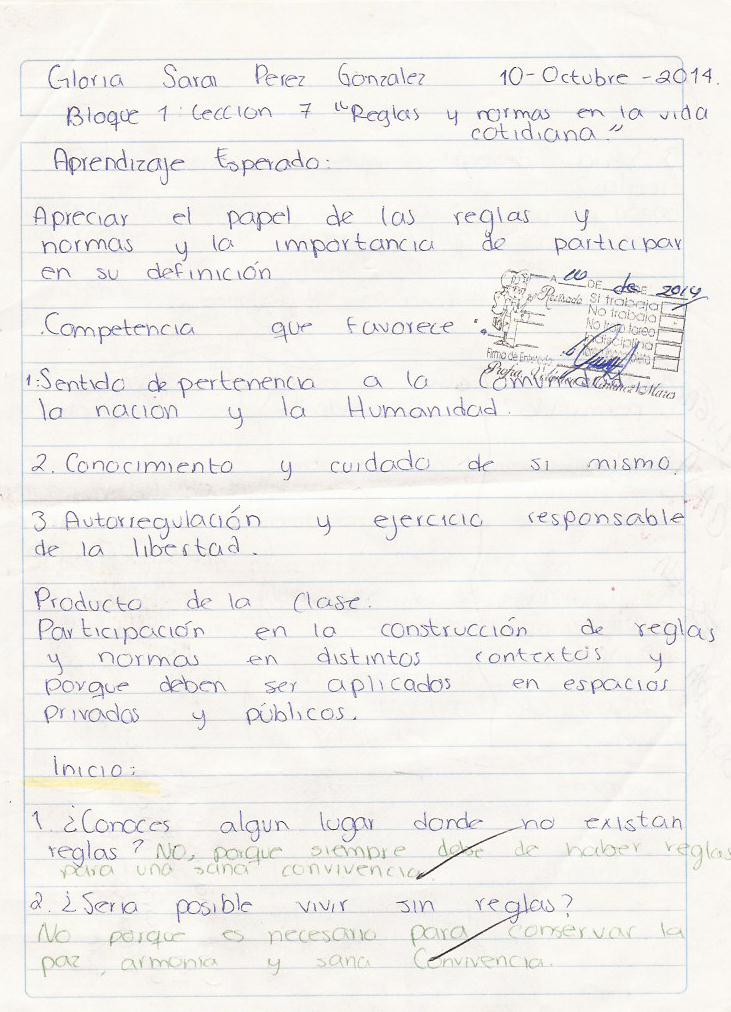 Gloria Sarai Perez Gonzalez 10-Octubre-2014.
Bloque 1: Leccion 7 "Reglas y normas en la vida
cotidiana."
Aprendizaje Esperado:
Apreciar el papel de las reglas y
normas y la importancia de participar
en su definición
.Competencia que favorece:
A 10 DE de 2014
Revisado
Si trabaja
No trabaja
No trajo tarea
Indisciplina
Firma de Enterado
Profra.
1:Sentido de pertenencia a la Comunidad
la nación y la Humanidad.
2. Conocimiento y cuidado de si mismo.
3 Autorregulación y ejercicio responsable
de la libertad.
Producto de la clase.
Participación en la construcción de reglas
y normas en distintos contextos y
porque deben ser aplicados en espacios
privados y públicos.
Inicio:
1. ¿Conoces algun lugar donde no existan
reglas? No, porque siempre debe de haber reglas
para una sana convivencia
2. ¿Seria posible vivir sin reglas?
No porque es necesario para conservar la
paz, armonia y sana Convivencia.